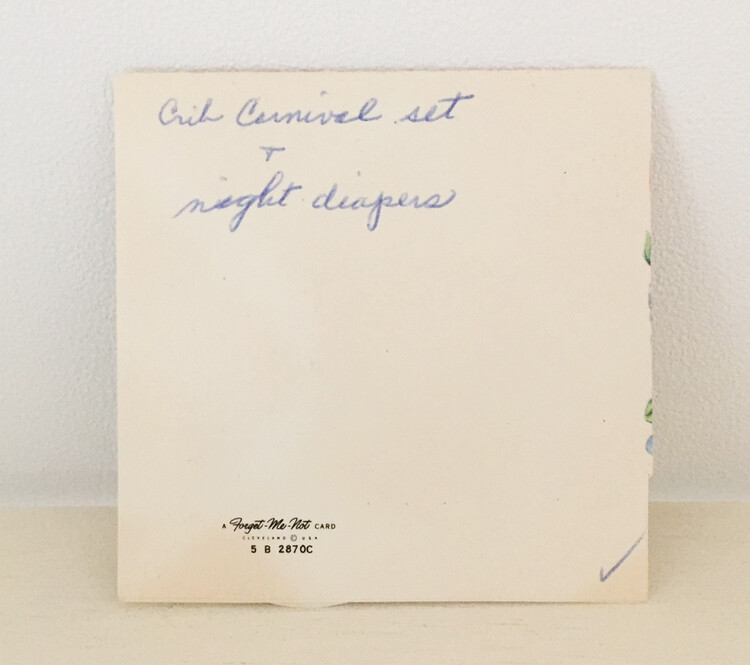 Crib Carnival set
+
night diapers
A Forget-Me-Not CARD
CLEVELAND © USA
5 B 2870C